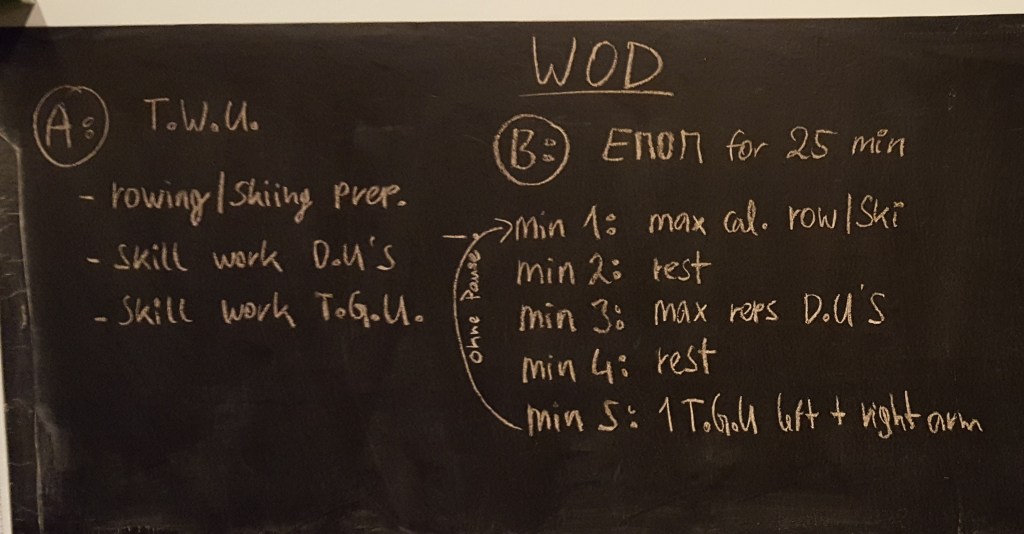 WOD
A: T.W.U.
- rowing/Skiing Prep.
- Skill work D.U'S
- Skill work T.G.U.
B: EMOM for 25 min
min 1: max cal. row/Ski
min 2: rest
min 3: max reps D.U'S
min 4: rest
min 5: 1 T.G.U left + right arm
ohne Pause